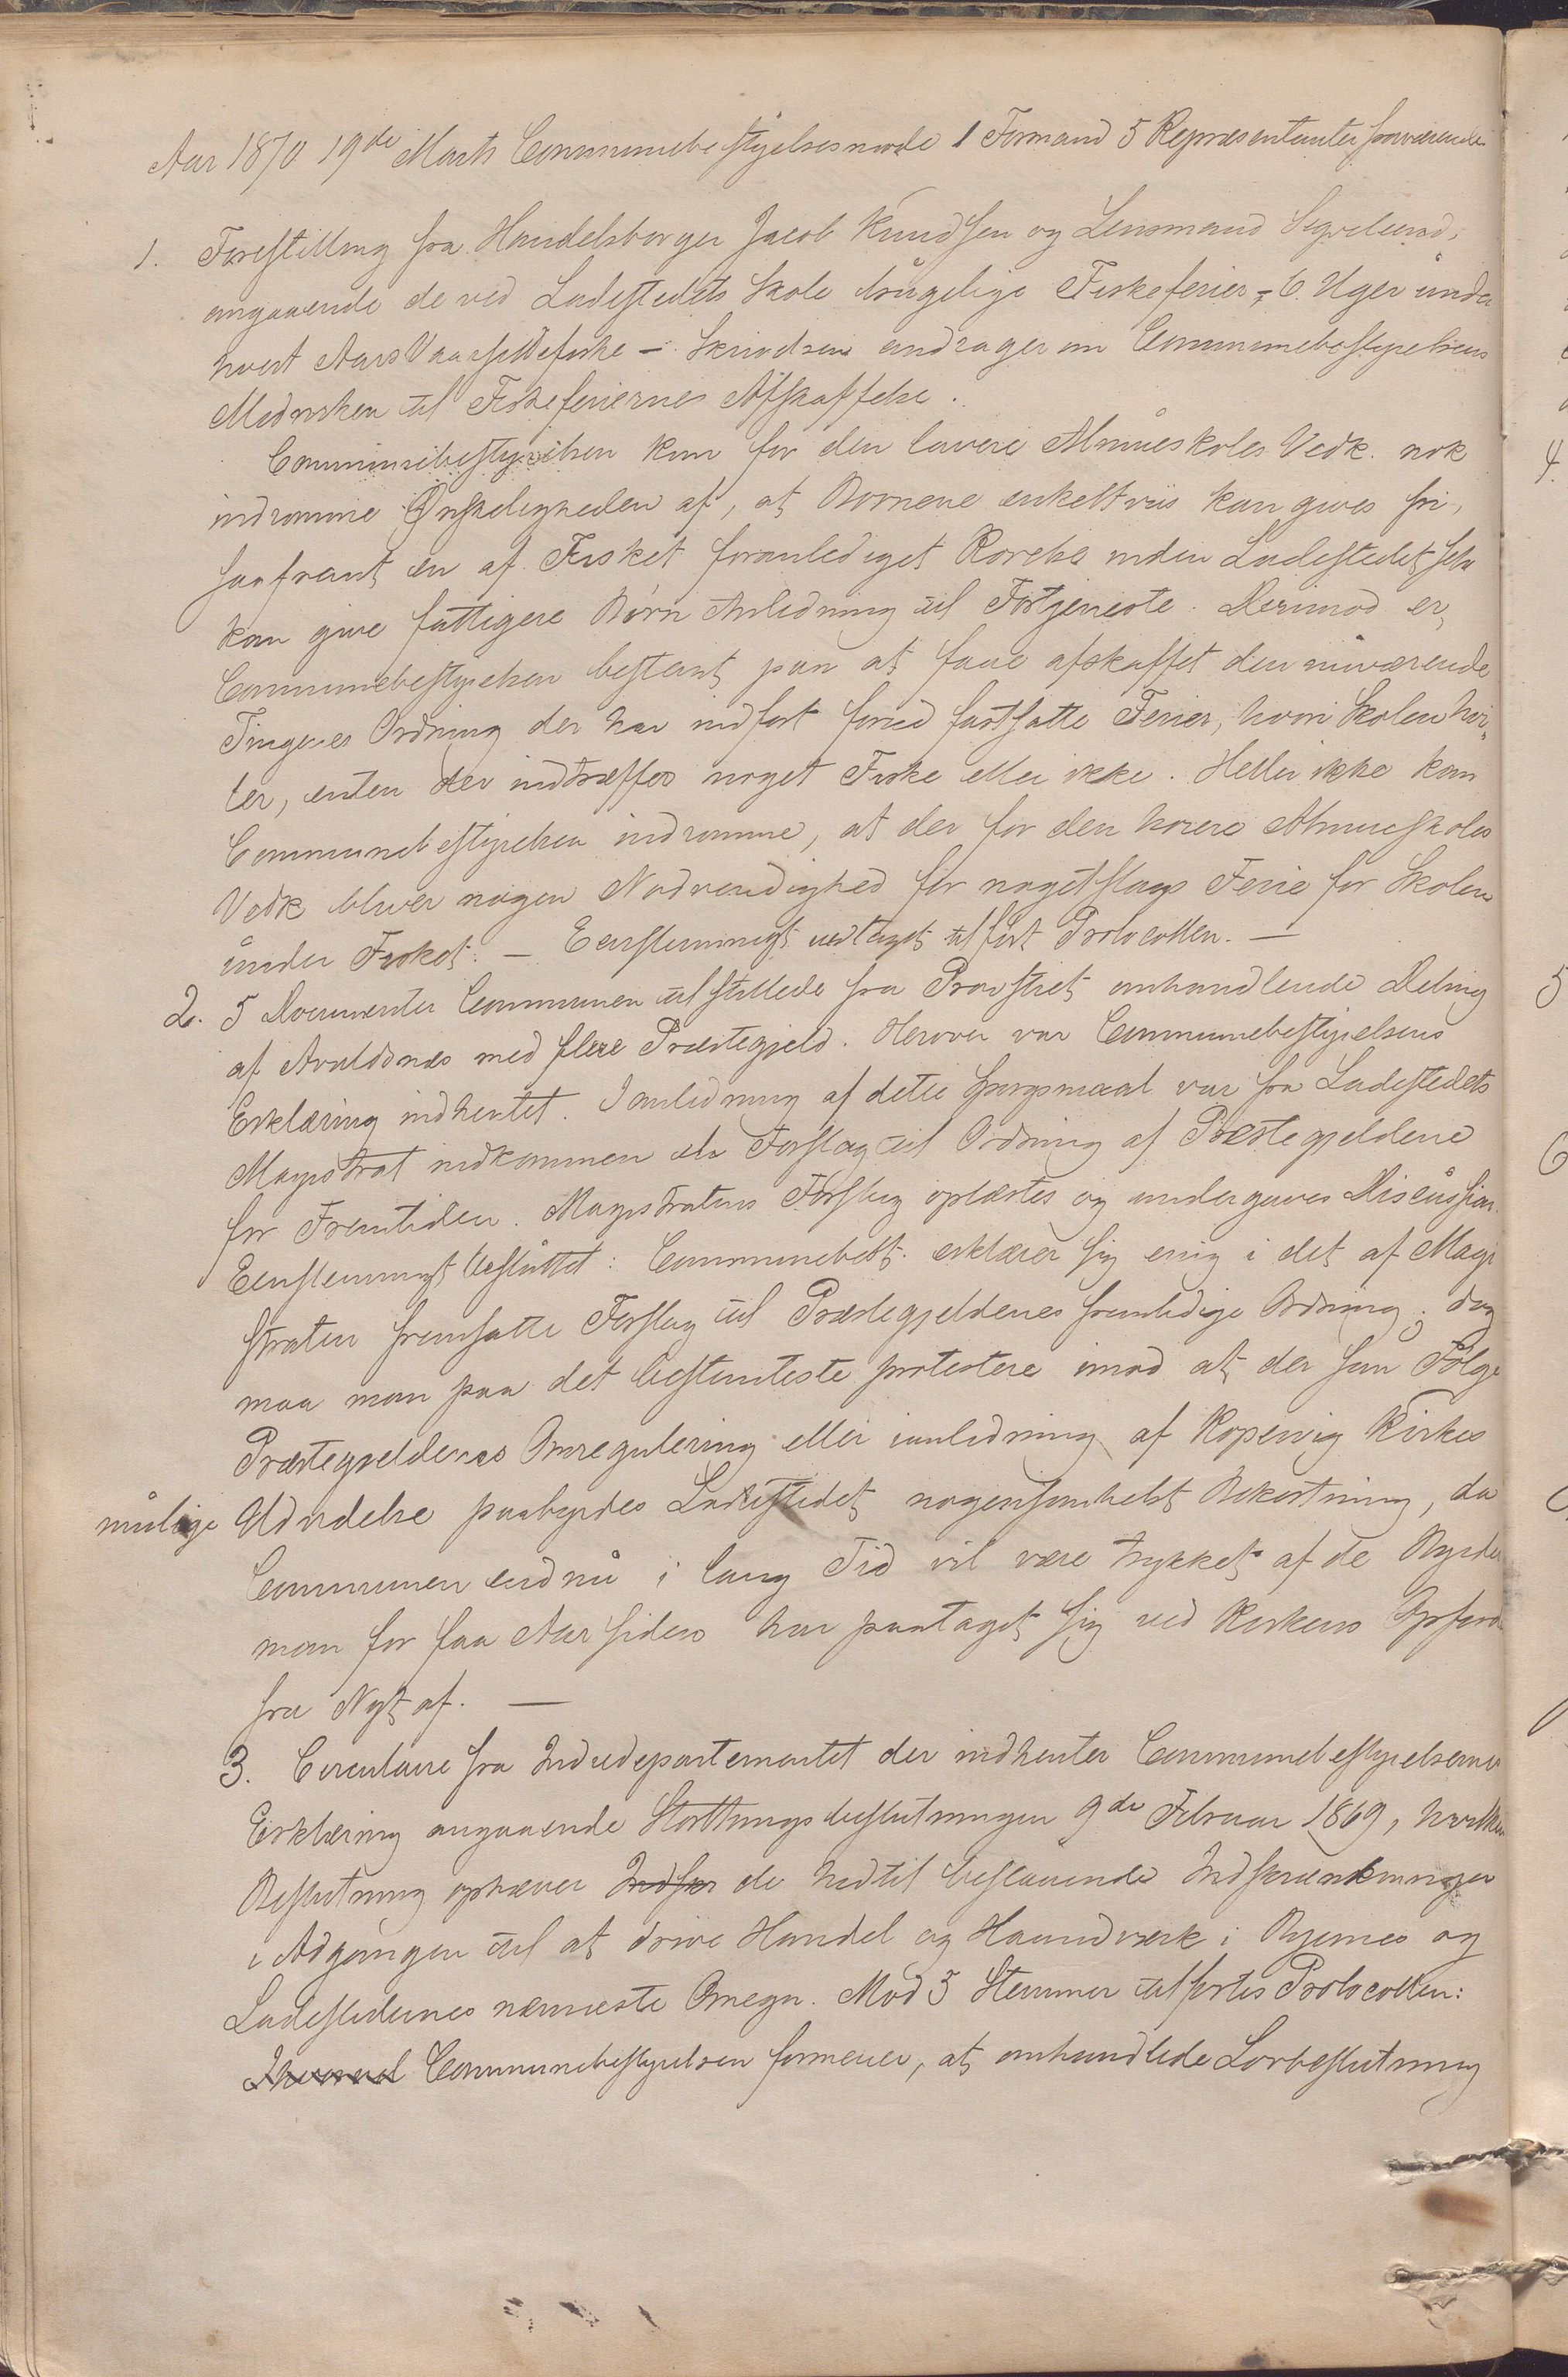 Aar 1870 19de Marts Communebestyrelsesmøde 1 Formand 5 Repræsentanter fraværende
1. Forestilling fra Handelsborger Jacob Knudsen og Lensmand
angaaende de ved Ladestedets Skole brugelige Fiskeferier - 6 Uger under
hvert Aars Vaarsildefiske - Skrivelsen andrager om Communebestyrelsens
Medvirken til Fiskeferiernes Afskaffelse.
Communebestyrelsen kan for den lavere Almueskoles Vedk. nok
indrømme Ønskeligheden af, at Børnene enkeltviis kan gives fri,
saafremt en af Fisket foranlediget Rørelse inden Ladestedet selv
kan give fattigere Børn Anledning til Fortjeneste. Derimod er
Communebestyrelsen bestemt paa at faae afskaffet den nuværende
Tingenes Ordning der har indført forud fastsatte Ferier, hvori Skolen hvi-
ler, enten der indtræffer noget Fiske eller ikke. Heller ikke kan
Communebestyrelsen indrømme, at der for den høiere Almueskoles
Vedk bliver nogen Nødvendighed for nogetslags Ferie for Skolen
under Fisket. - Eenstemmigt vedtaget tilført Protocollen. -
2. 5 Documenter Communen tilstillede fra Provstiet omhandlende Deling
af Avaldsnæs med flere Præstegjeld. Herover var Communebestyrelsens
Erklæring indhentet. I anledning af dette Spørgsmaal var fra Ladestedets
Magistrat indkommen et Forslag til Ordning af Præstegjeldene
for Fremtiden. Magistratens Forslag oplæstes og undergaves Discussion.
Eenstemmigt besluttet: Communebest. erklærer sig enig i det af Magi
straten fremsatte Forslag til Præstegjeldenes fremtidige Ordning; dog
maa man paa det bestemteste protestere imod at der som Følge
Præstegjeldenes Omregulering eller i anledning af Kopervig Kirkes
mulige Udvidelse paabyrdes Ladestedet nogensomhelst Bekostning, da
Communen endnu i lang Tid vil være trykket af de Byrder
man for faa Aar siden har paataget sig ved Kirkens Opførelse
fra Nyt af. -
3. Circulaire fra Indredepartementet der indhenter Communebestyrelsernes
Erklæring angaaende Storthingsbeslutningen 9de Februar 1869, hvilken
Beslutning ophæver Indskr de hidtil bestaaende Indskrænkninger
i Adgangen til at drive Handel og Haandværk i Byernes og
Ladestedernes nærmeste Omegn. Mod 3 Stemmer tilførtes Protocollen:
Communebestyrelsen formener, at omhandlede Lovbeslutning
4.
5
6